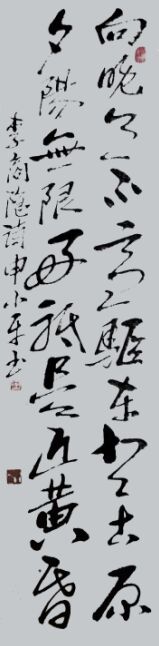 向晚意不適驅車登古原
夕陽無限好祗是近黄昏
李商隱詩申小平书